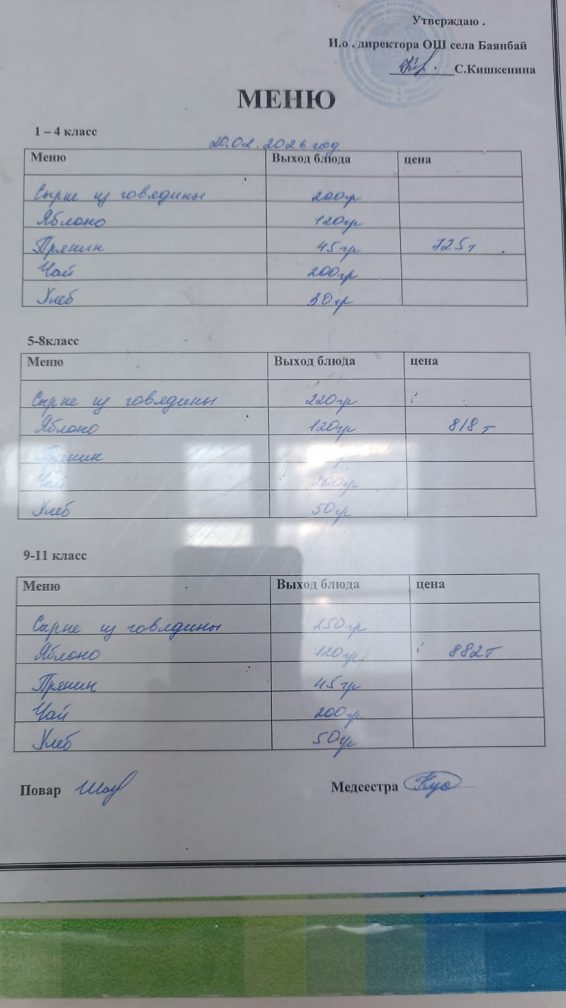 Утверждаю .
И.о . директора ОШ села Баянбай
С.Кишкенина
МЕНЮ
1 – 4 класс
20.02.2026 год
Меню Выход блюда цена
Сырне из говядины 200гр
Яблоко 120гр
Пряник 45гр 725т
Чай 200гр
Хлеб 30гр
5-8класс
Меню Выход блюда цена
Сырне из говядины 220гр
Яблоко 120гр 818т
Хлеб 50гр
9-11 класс
Меню Выход блюда цена
Сырне из говядины 250гр
Яблоко 120гр 882т
Пряник 45гр
Чай 200гр
Хлеб 50гр
Повар Медсестра